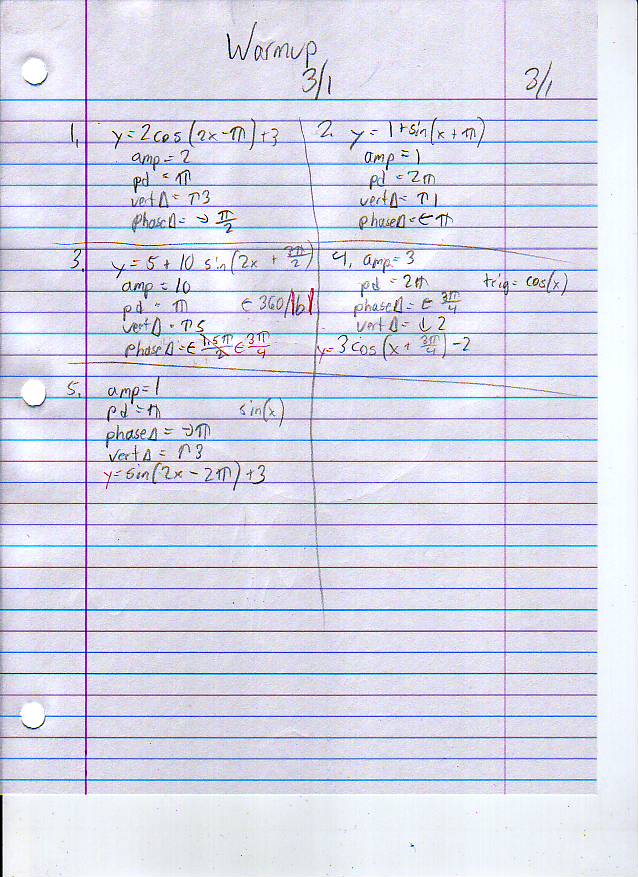 Warmup
3/1
3/1
1. y = 2cos(2x-π)+3
amp = 2
pd = π
vert Δ = ↑3
phase Δ = → π/2
2. y = 1+sin(x+π)
amp = 1
pd = 2π
vert Δ = ↑1
phase Δ = ← π
3. y = 5 + 10 sin(2x + 3π/2)
amp = 10
pd = π ← 360/|b|
vert Δ = ↑5
phase Δ = ← 1.5π/2 ← 3π/4
4. amp = 3
pd = 2π trig = cos(x)
phase Δ = ← 3π/4
vert Δ = ↓2
y = 3cos(x + 3π/4) - 2
5. amp = 1
pd = π sin(x)
phase Δ = → π
vert Δ = ↑3
y = sin(2x - 2π) + 3